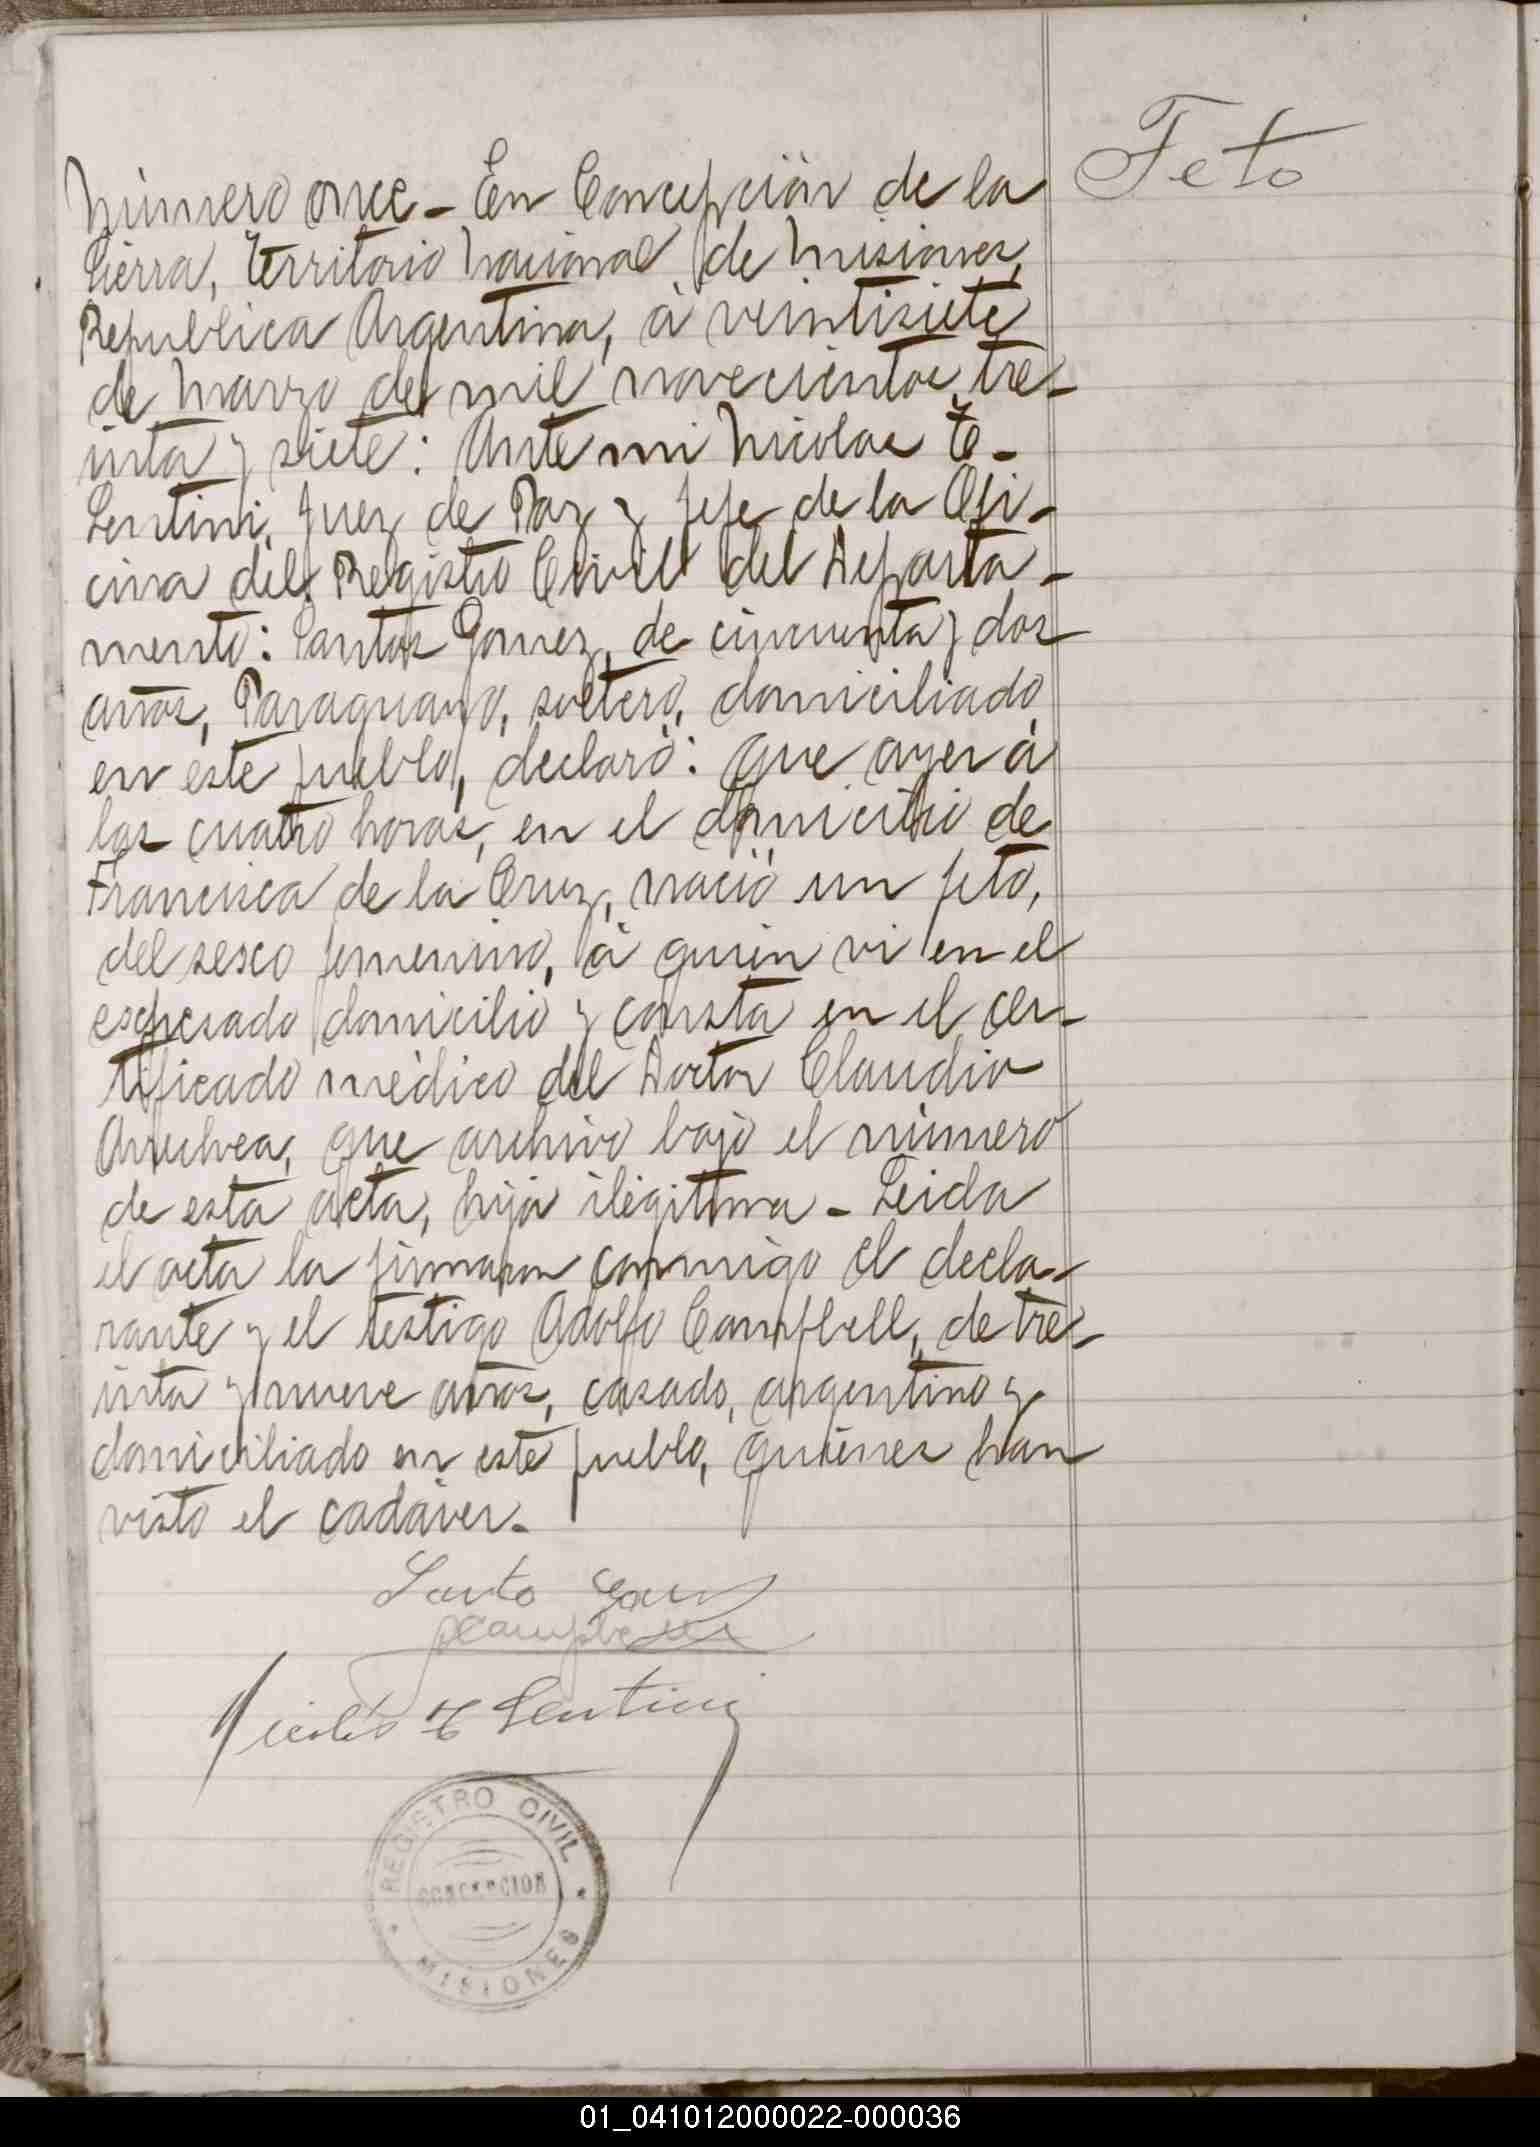 Feto
Número once - En Concepción de la
Sierra, Territorio Nacional de Misiones,
Republica Argentina, á veintisiete
de Marzo de mil novecientos tre-
inta y siete: Ante mi Nicolas E.
Lentini, Juez de Paz y Jefe de la Ofi-
cina del Registro Civil del Departa-
mento: Santos Gomez, de cincuenta y dos
años, Paraguayo, soltero, domiciliado
en este pueblo, declaró: Que ayer á
las cuatro horas, en el domicilio de
Francisca de la Cruz, nació un feto,
del sesco femenino, á quien vi en el
escpresado domicilio y consta en el cer-
tificado médico del Doctor Claudio
Arrechea, que archivo bajo el número
de esta acta, hija ilegitima - Leida
el acta la firmaron conmigo el decla-
rante y el testigo Adolfo Campbell, de tre-
inta y nueve años, casado, argentino y
domiciliado en este pueblo, quienes han
visto el cadáver.
Santo
Campbell
Nicolás E Lentini
REGISTRO CIVIL
CONCEPCION
MISIONES
01_041012000022-000036